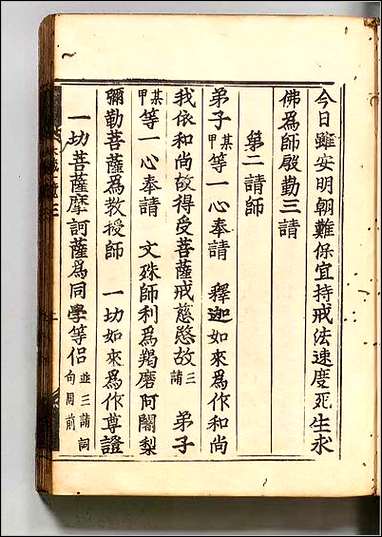 今日雖安明朝難保宜持戒法速度死生求
佛爲師殷勤三請
第二請師
弟子某甲等一心奉請 釋迦如來爲作和尚
我依和尚故得受菩薩戒慈愍故三請 弟子
某甲等一心奉請 文殊師利爲羯磨阿闍梨
彌勒菩薩爲教授師 一切如來爲作尊證
一切菩薩摩訶薩爲同學等侶並三請詞句同前